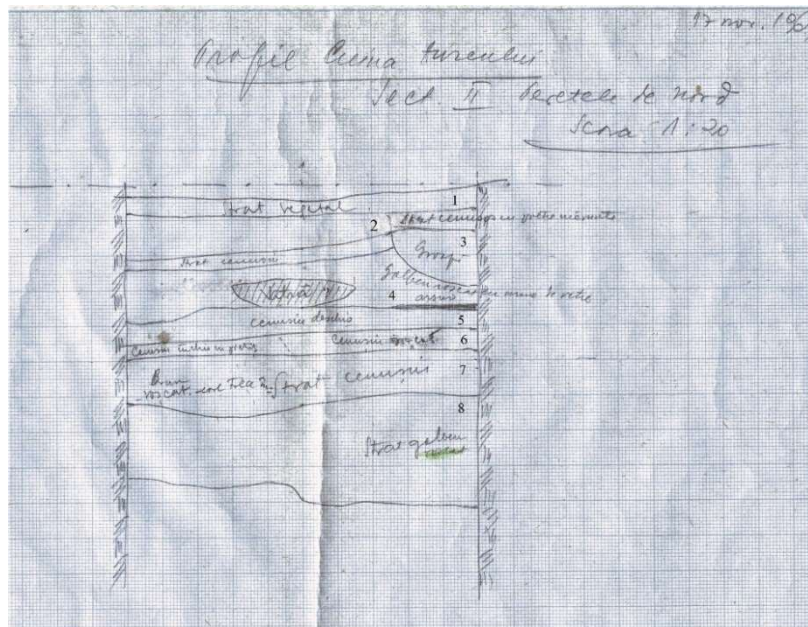 17 nov. 19
Profil Cuina turcului
Sect. II Peretele de nord
Scara 1:20
1
Strat vegetal
2
Strat cenusos cu pietre
3
Groapă
strat cenusiu
Galben roscat cu urme de vetre
4
arsură
cenusiu deschis
5
Cenusiu inchis cu
cenusiu roscat
6
7
Brun
roscat
Strat cenusiu
8
Strat galben
roscat